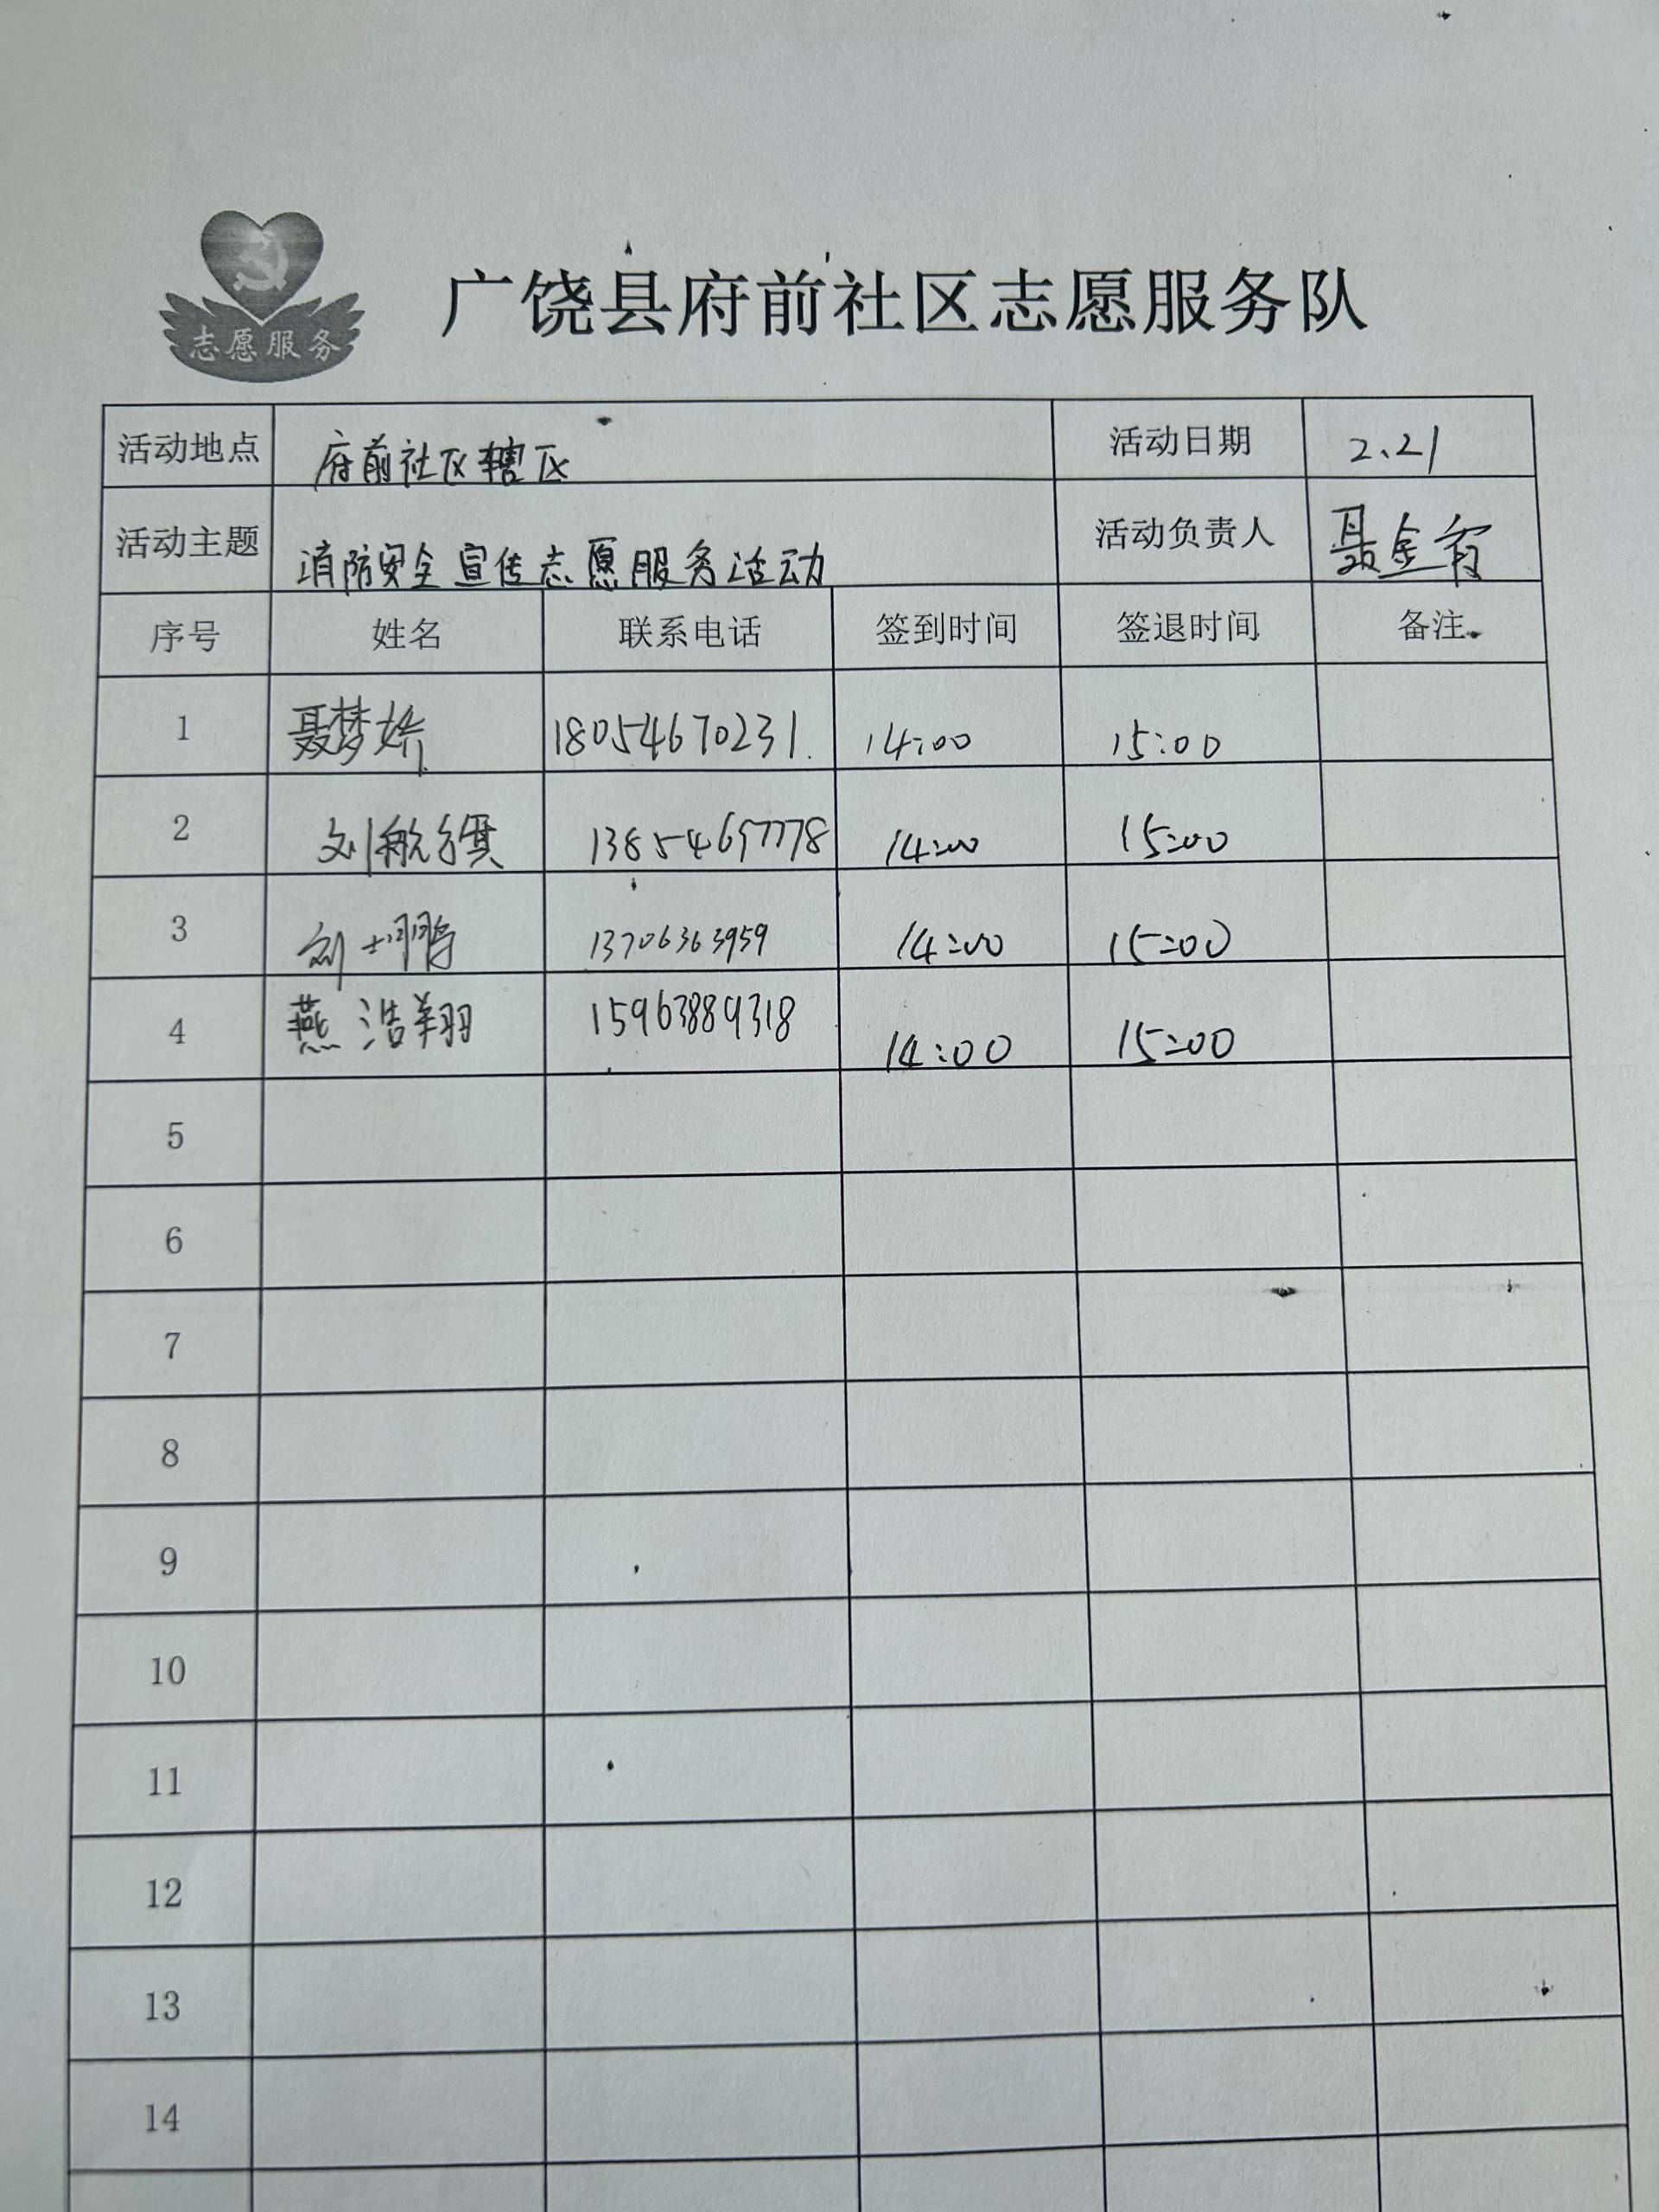 志愿服务
广饶县府前社区志愿服务队
活动地点 府前社区辖区 活动日期 2.21
活动主题 消防安全宣传志愿服务活动 活动负责人 聂金
序号 姓名 联系电话 签到时间 签退时间 备注
1 聂梦娇 18054670231 14:00 15:00
2 刘航 14:00 15:00
3 13706363959 14:00 15:00
4 燕浩翔 15963889318 14:00 15:00
5
6
7
8
9
10
11
12
13
14